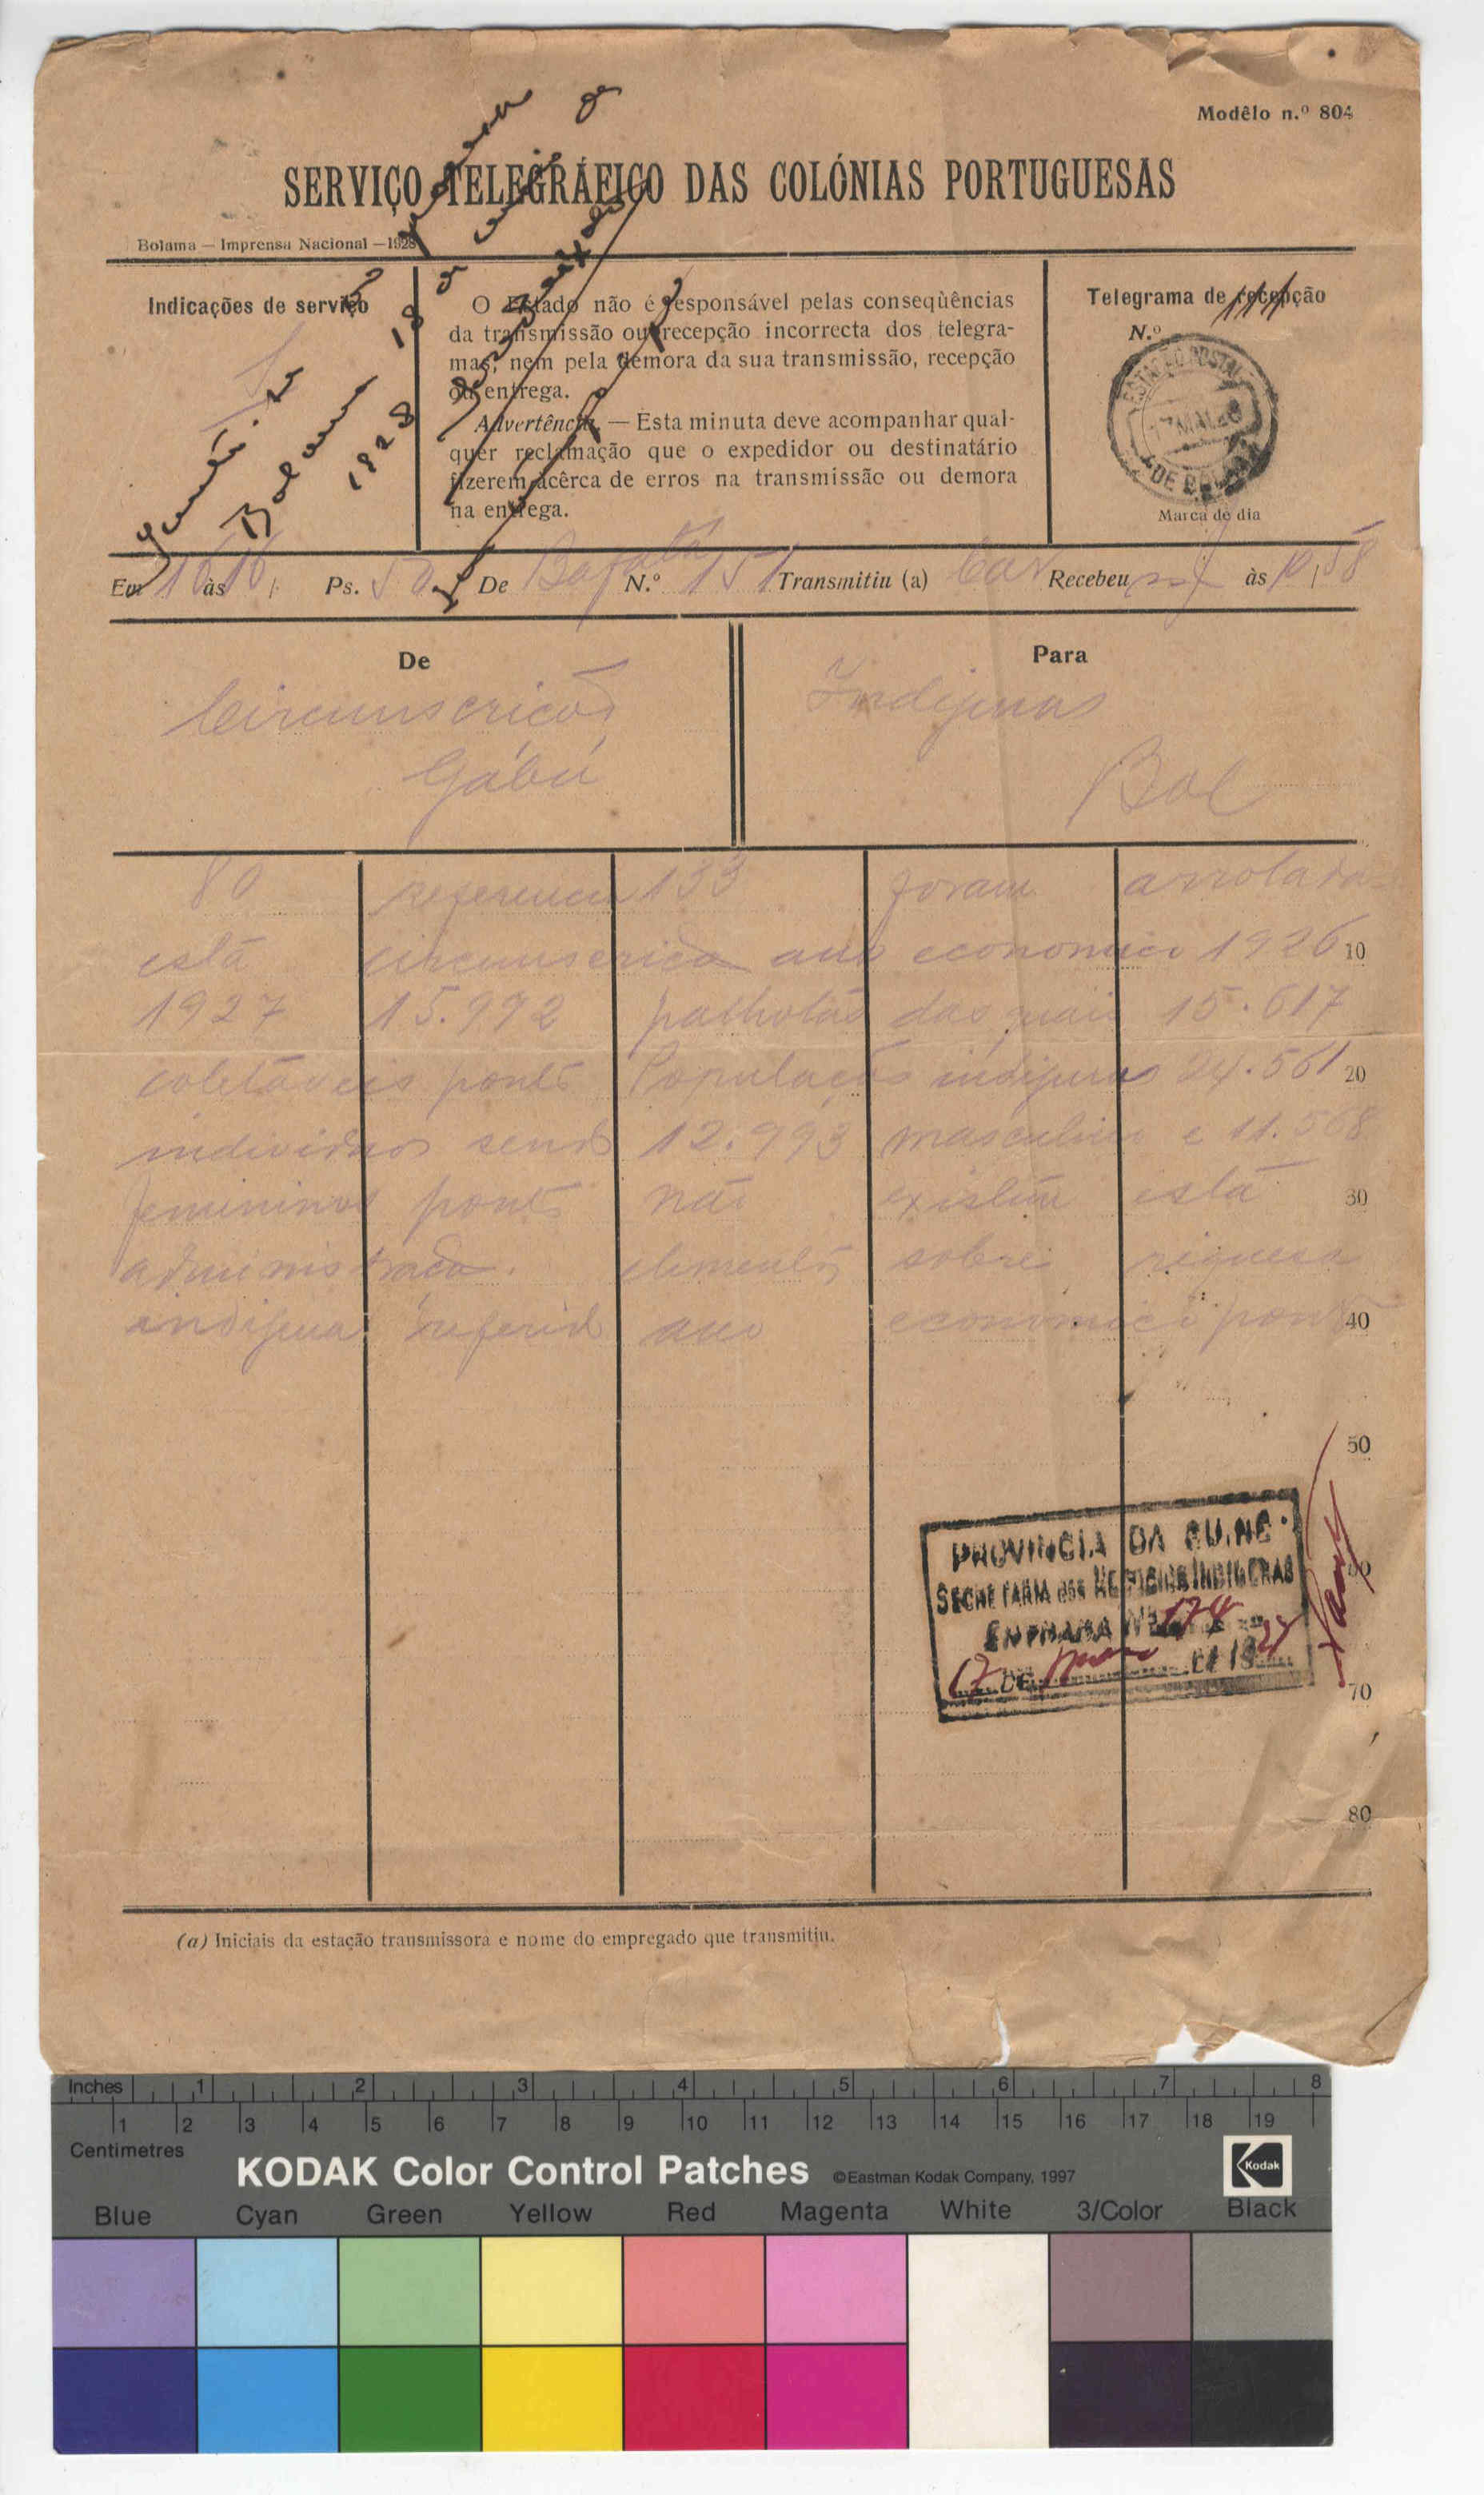 Modêlo n.º 804
SERVIÇO TELEGRÁFICO DAS COLÓNIAS PORTUGUESAS
Bolama — Imprensa Nacional — 1928
Indicações de serviço
O Estado não é responsável pelas conseqùências
da transmissão ou recepção incorrecta dos telegra-
mas, nem pela demora da sua transmissão, recepção
ou entrega.
Advertência. — Esta minuta deve acompanhar qual-
quer reclamação que o expedidor ou destinatário
fizerem àcêrca de erros na transmissão ou demora
na entrega.
Telegrama de recepção
N.º
111
ESTAÇÃO POSTAL
17 MAI. 28
Marca de dia
Bolama 18
1928
Em 16 às 16 Ps. 50 De Bafatá N.º 151 Transmitiu (a) Recebeu às 10,58
De
Circunscrição
Gábú
Para
Indigenas
Bol
80 referencia 133 foram arrolada
está circunscrição ano economico 1926 10
1927 15.992 palhotas das quais 15.617
coletáveis ponto População indigenas 24.561 20
individuos sendo 12.993 masculino e 11.568
femininos ponto não existem está 30
administração elementos sobre riquesa
indigena referido ano economico ponto 40
50
60
70
80
PROVINCIA DA GUINÉ
SECRETARIA DOS NEGOCIOS INDIGENAS
ENTRADA Nº 174
17 DE Maio DE 1928
(a) Iniciais da estação transmissora e nome do empregado que transmitiu.
Inches 1 2 3 4 5 6 7 8
1 2 3 4 5 6 7 8 9 10 11 12 13 14 15 16 17 18 19
Centimetres
KODAK Color Control Patches ©Eastman Kodak Company, 1997 Kodak
Blue Cyan Green Yellow Red Magenta White 3/Color Black